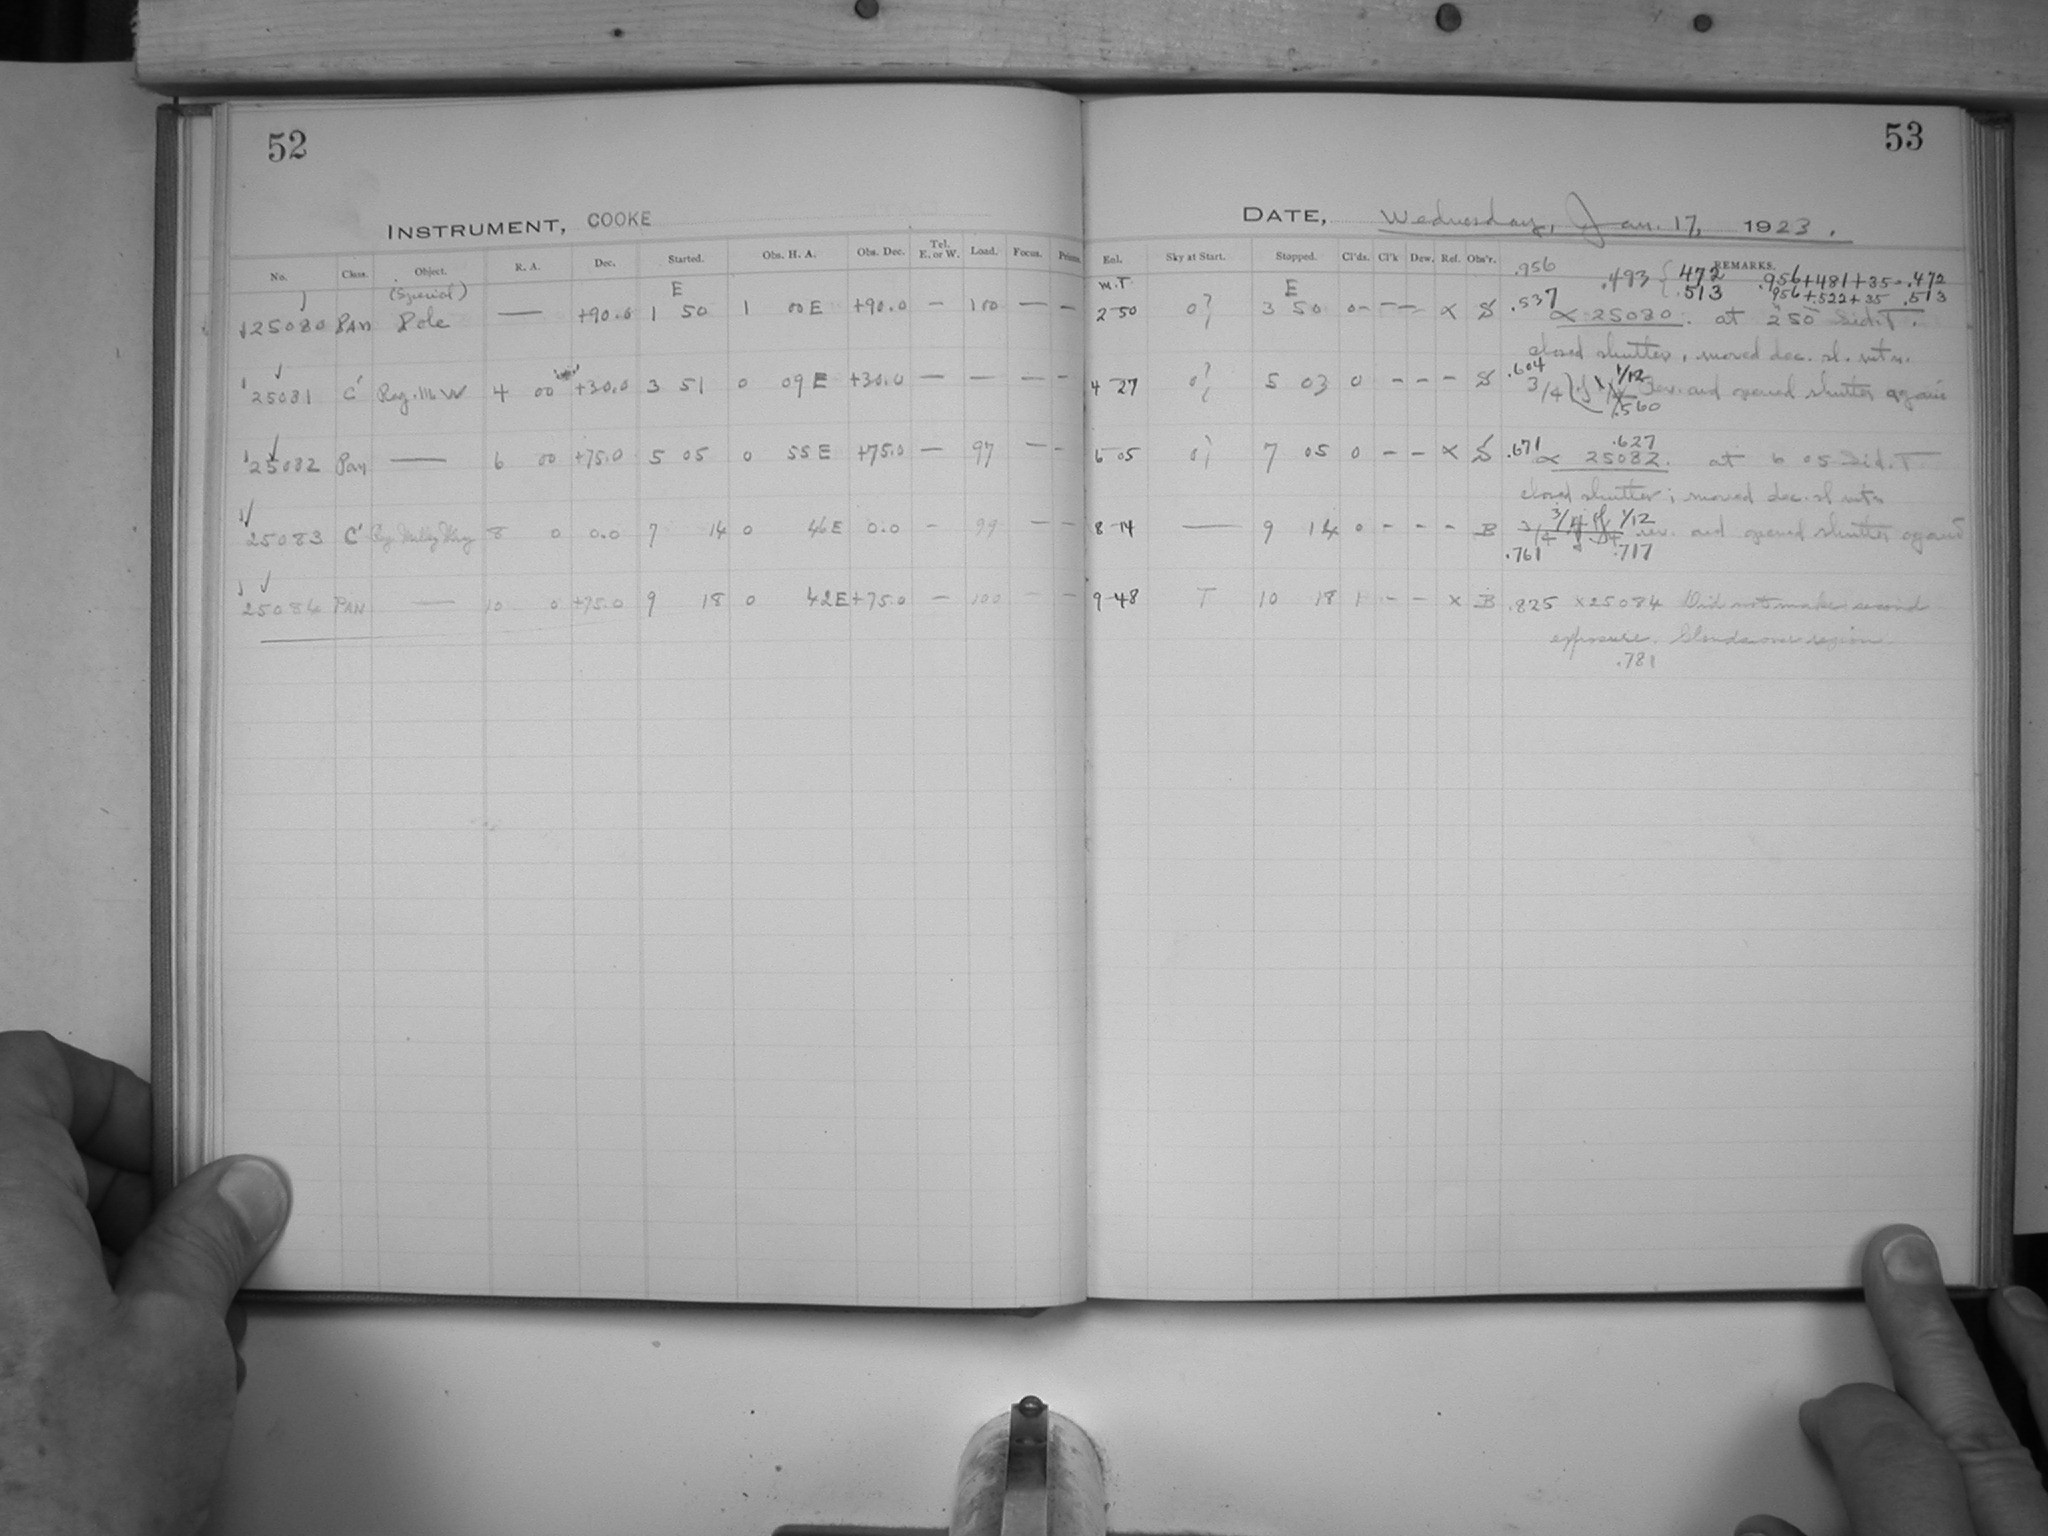 52
INSTRUMENT, COOKE
No. Class. Object. R. A. Dec. Started. Obs. H. A. Obs. Dec. Tel. E. or W. Load. Focus.
(Special) E
25080 PAN Pole — +90.0 1 50 1 00 E +90.0 — 100 — —
25081 C' Reg. M W 4 00 +30.0 3 51 0 09 E +30.0 — — — —
25082 Pan — 6 00 +75.0 5 05 0 55 E +75.0 — 97 — –
25083 C' Reg. Milky Way 8 0 0.0 7 14 0 46 E 0.0 – 99 — –
25084 PAN — 10 0 +75.0 9 18 0 42 E +75.0 – 100 – –
53
DATE, Wednesday, Jan. 17, 1923.
Sky at Start. Stopped. Cl'ds. Cl'k Dew. Ref. Obs'r. REMARKS.
M.T E .956 .493 { 472 .513 .956+481+35=.472
956+.522+35 .513
2-50 0? 3 50 0 – – – × S .537
× 25080. at 2 50 Sid.T.
closed shutter, moved dec. sl. mtn.
4-27 0? 5 03 0 – – – S .604
3/4 of 1/12 rev. and opened shutter again
.560
6-05 0? 7 05 0 – – × S .671 .627
× 25082. at 6 05 Sid.T
closed shutter; moved dec. sl mtn
8-14 — 9 14 0 – – – B 3/4 of 1/12 rev. and opened shutter again
.761 .717
9-48 T 10 18 1 – – × B .825 ×25084 Did not make second
exposure. Clouds over region
.781